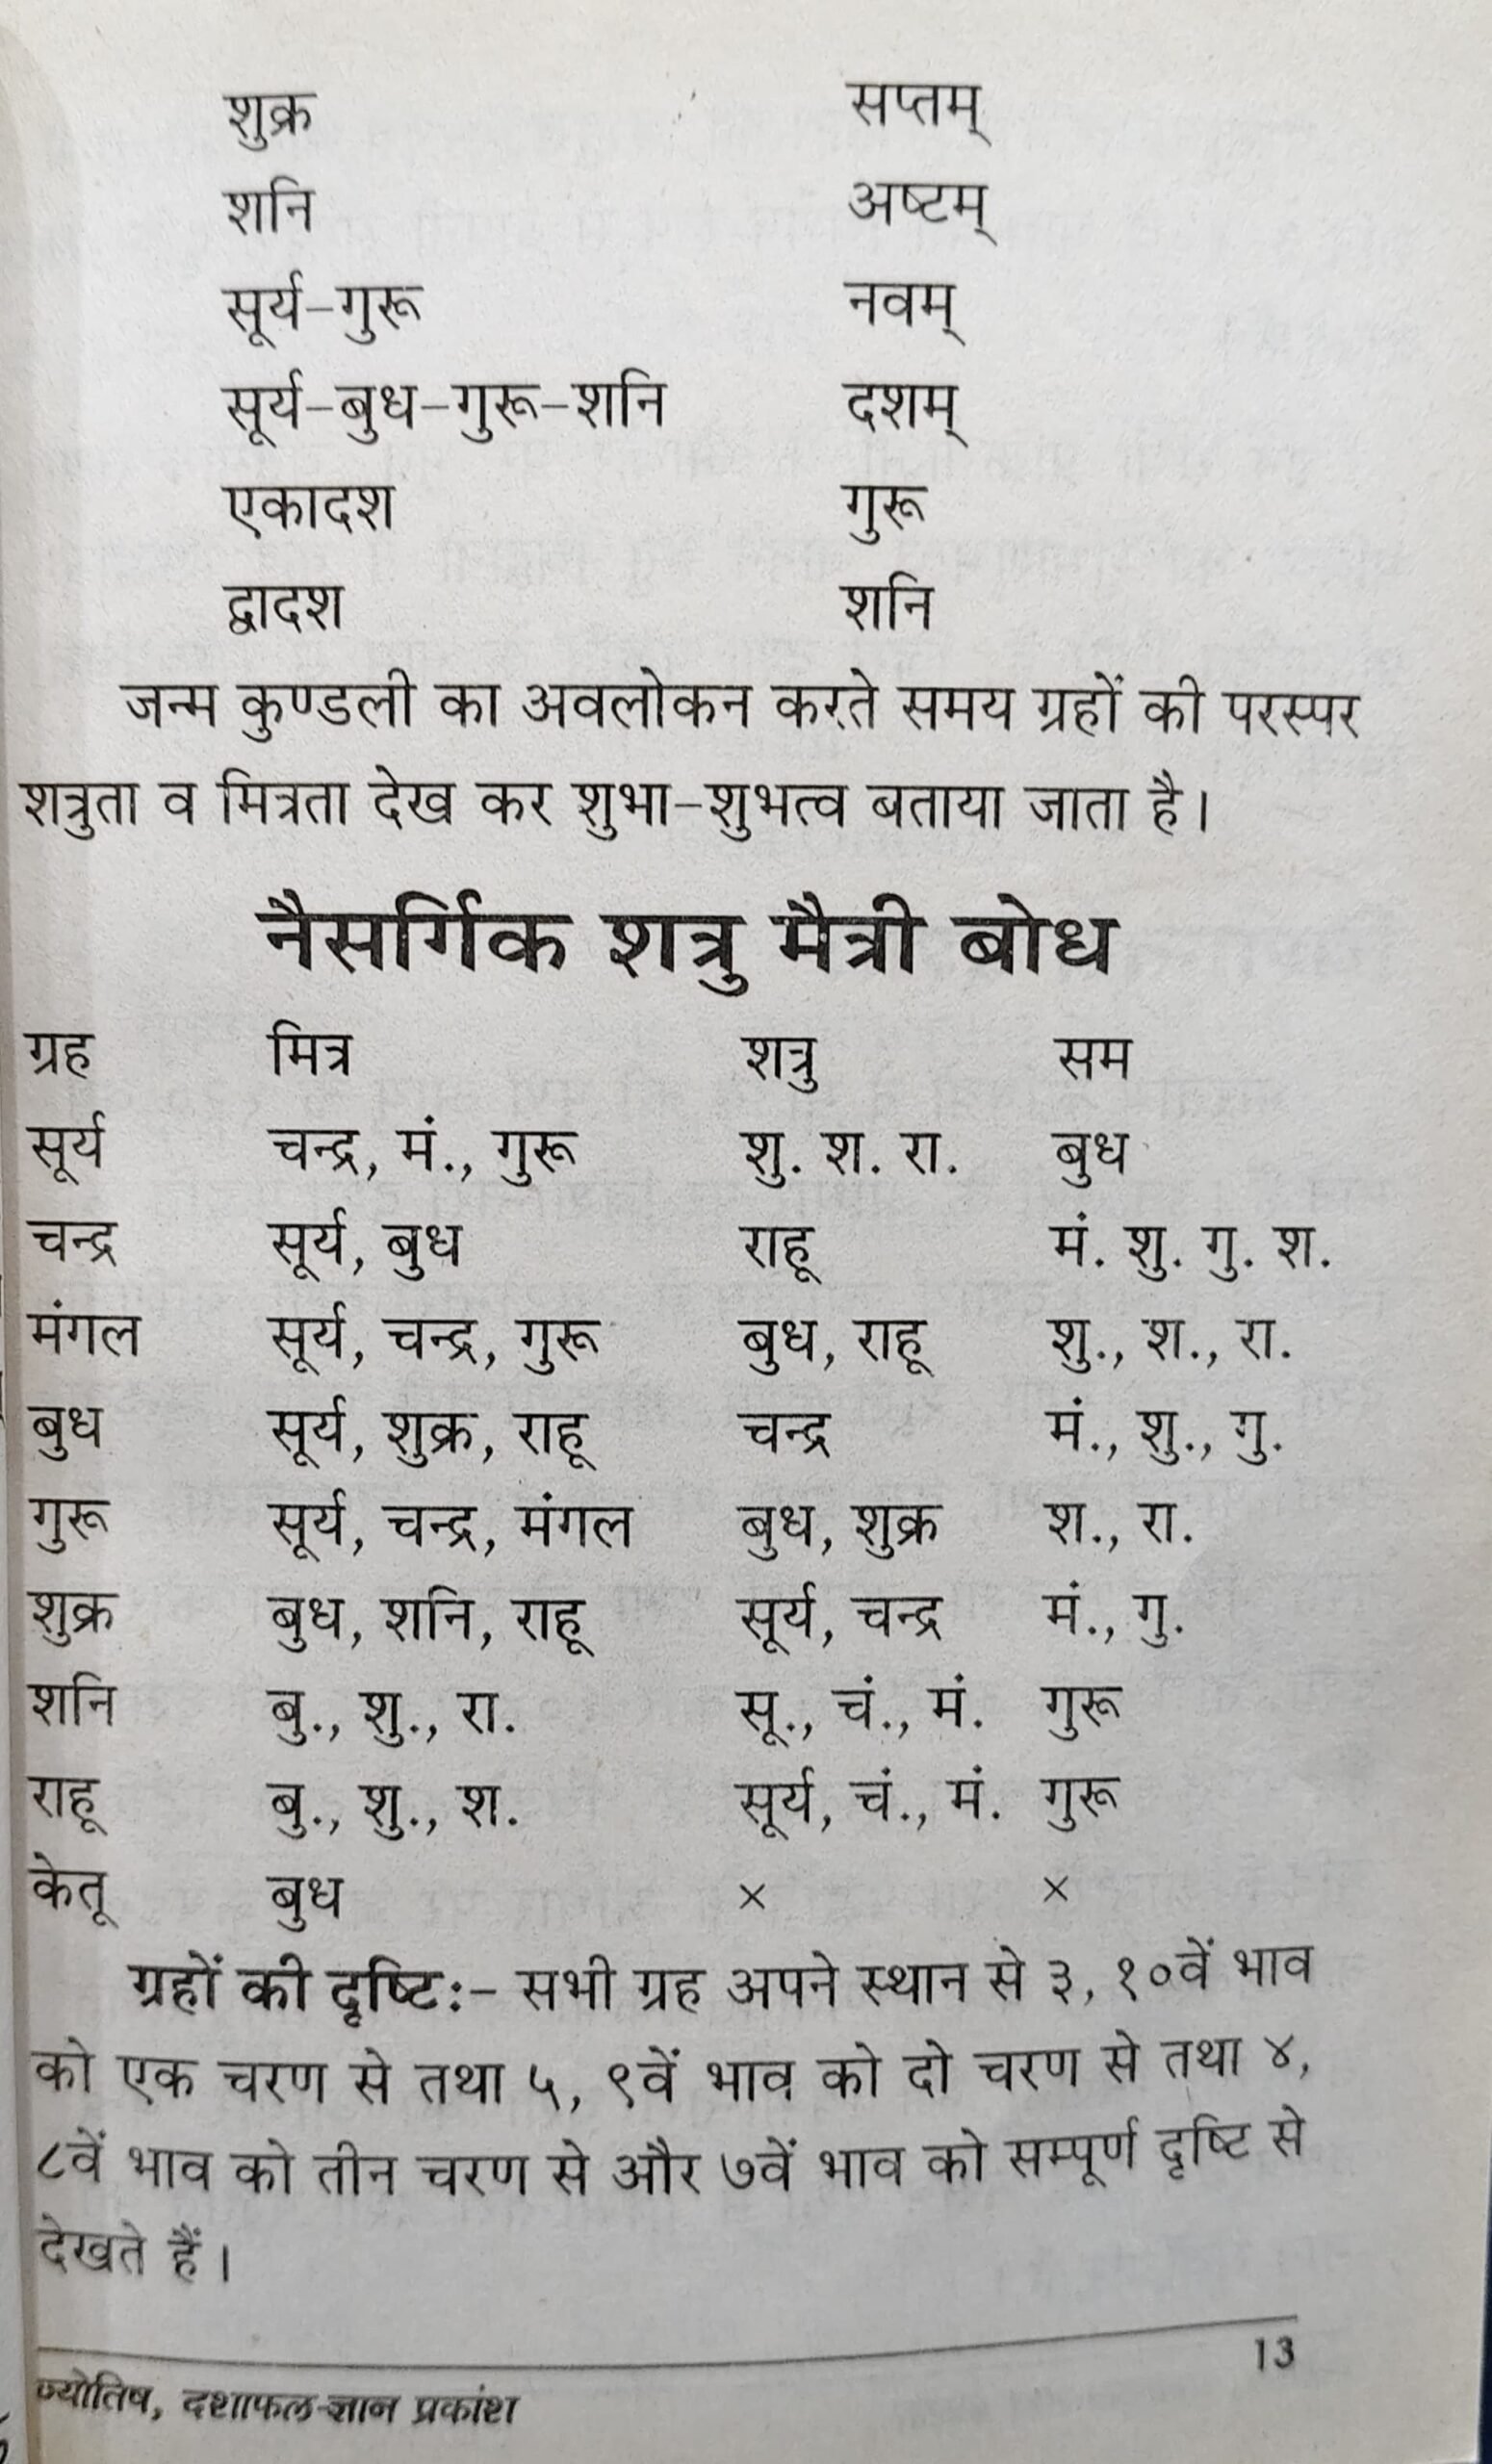 शुक्र सप्तम्
शनि अष्टम्
सूर्य-गुरू नवम्
सूर्य-बुध-गुरू-शनि दशम्
एकादश गुरू
द्वादश शनि
जन्म कुण्डली का अवलोकन करते समय ग्रहों की परस्पर
शत्रुता व मित्रता देख कर शुभा-शुभत्व बताया जाता है।
नैसर्गिक शत्रु मैत्री बोध
ग्रह मित्र शत्रु सम
सूर्य चन्द्र, मं., गुरू शु. श. रा. बुध
चन्द्र सूर्य, बुध राहू मं. शु. गु. श.
मंगल सूर्य, चन्द्र, गुरू बुध, राहू शु., श., रा.
बुध सूर्य, शुक्र, राहू चन्द्र मं., शु., गु.
गुरू सूर्य, चन्द्र, मंगल बुध, शुक्र श., रा.
शुक्र बुध, शनि, राहू सूर्य, चन्द्र मं., गु.
शनि बु., शु., रा. सू., चं., मं. गुरू
राहू बु., शु., श. सूर्य, चं., मं. गुरू
केतू बुध × ×
ग्रहों की दृष्टि:- सभी ग्रह अपने स्थान से ३, १०वें भाव
को एक चरण से तथा ५, ९वें भाव को दो चरण से तथा ४,
८वें भाव को तीन चरण से और ७वें भाव को सम्पूर्ण दृष्टि से
देखते हैं।
13
ज्योतिष, दशाफल-ज्ञान प्रकांश